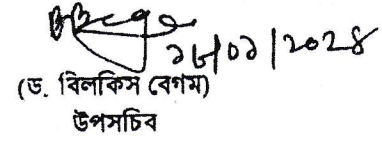 ২৮/০১/২০২৪
(ড. বিলকিস বেগম)
উপসচিব